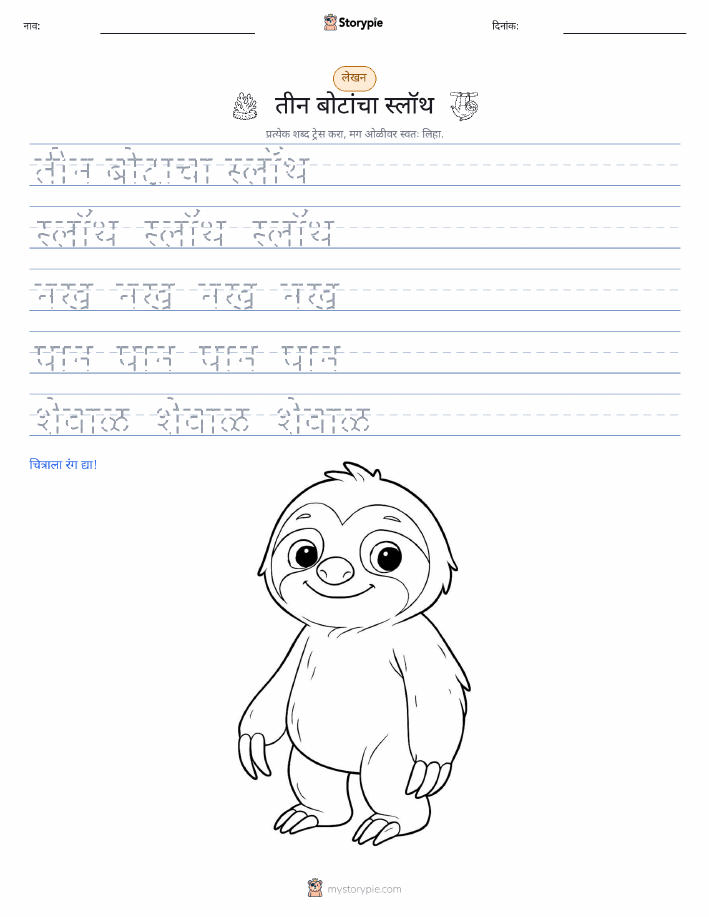 नाव:
Storypie
दिनांक:
लेखन
तीन बोटांचा स्लॉथ
प्रत्येक शब्द ट्रेस करा, मग ओळीवर स्वतः लिहा.
तीन बोटांचा स्लॉथ
स्लॉथ स्लॉथ स्लॉथ
नख नख नख नख
पान पान पान पान
शेवाळ शेवाळ शेवाळ
चित्राला रंग द्या!
mystorypie.com